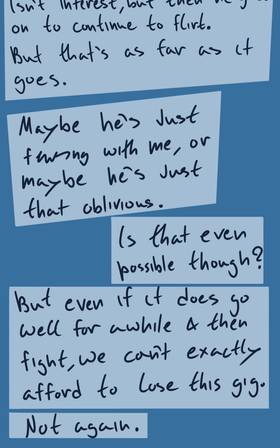 Isn't interest, but then he goes
on to continue to flirt.
But that's as far as it
goes.
Maybe he's just
with me, or
maybe he's just
that oblivious.
Is that even
possible though?
But even if it does go
well for awhile & then
fight, we can't exactly
afford to lose this gig.
Not again.